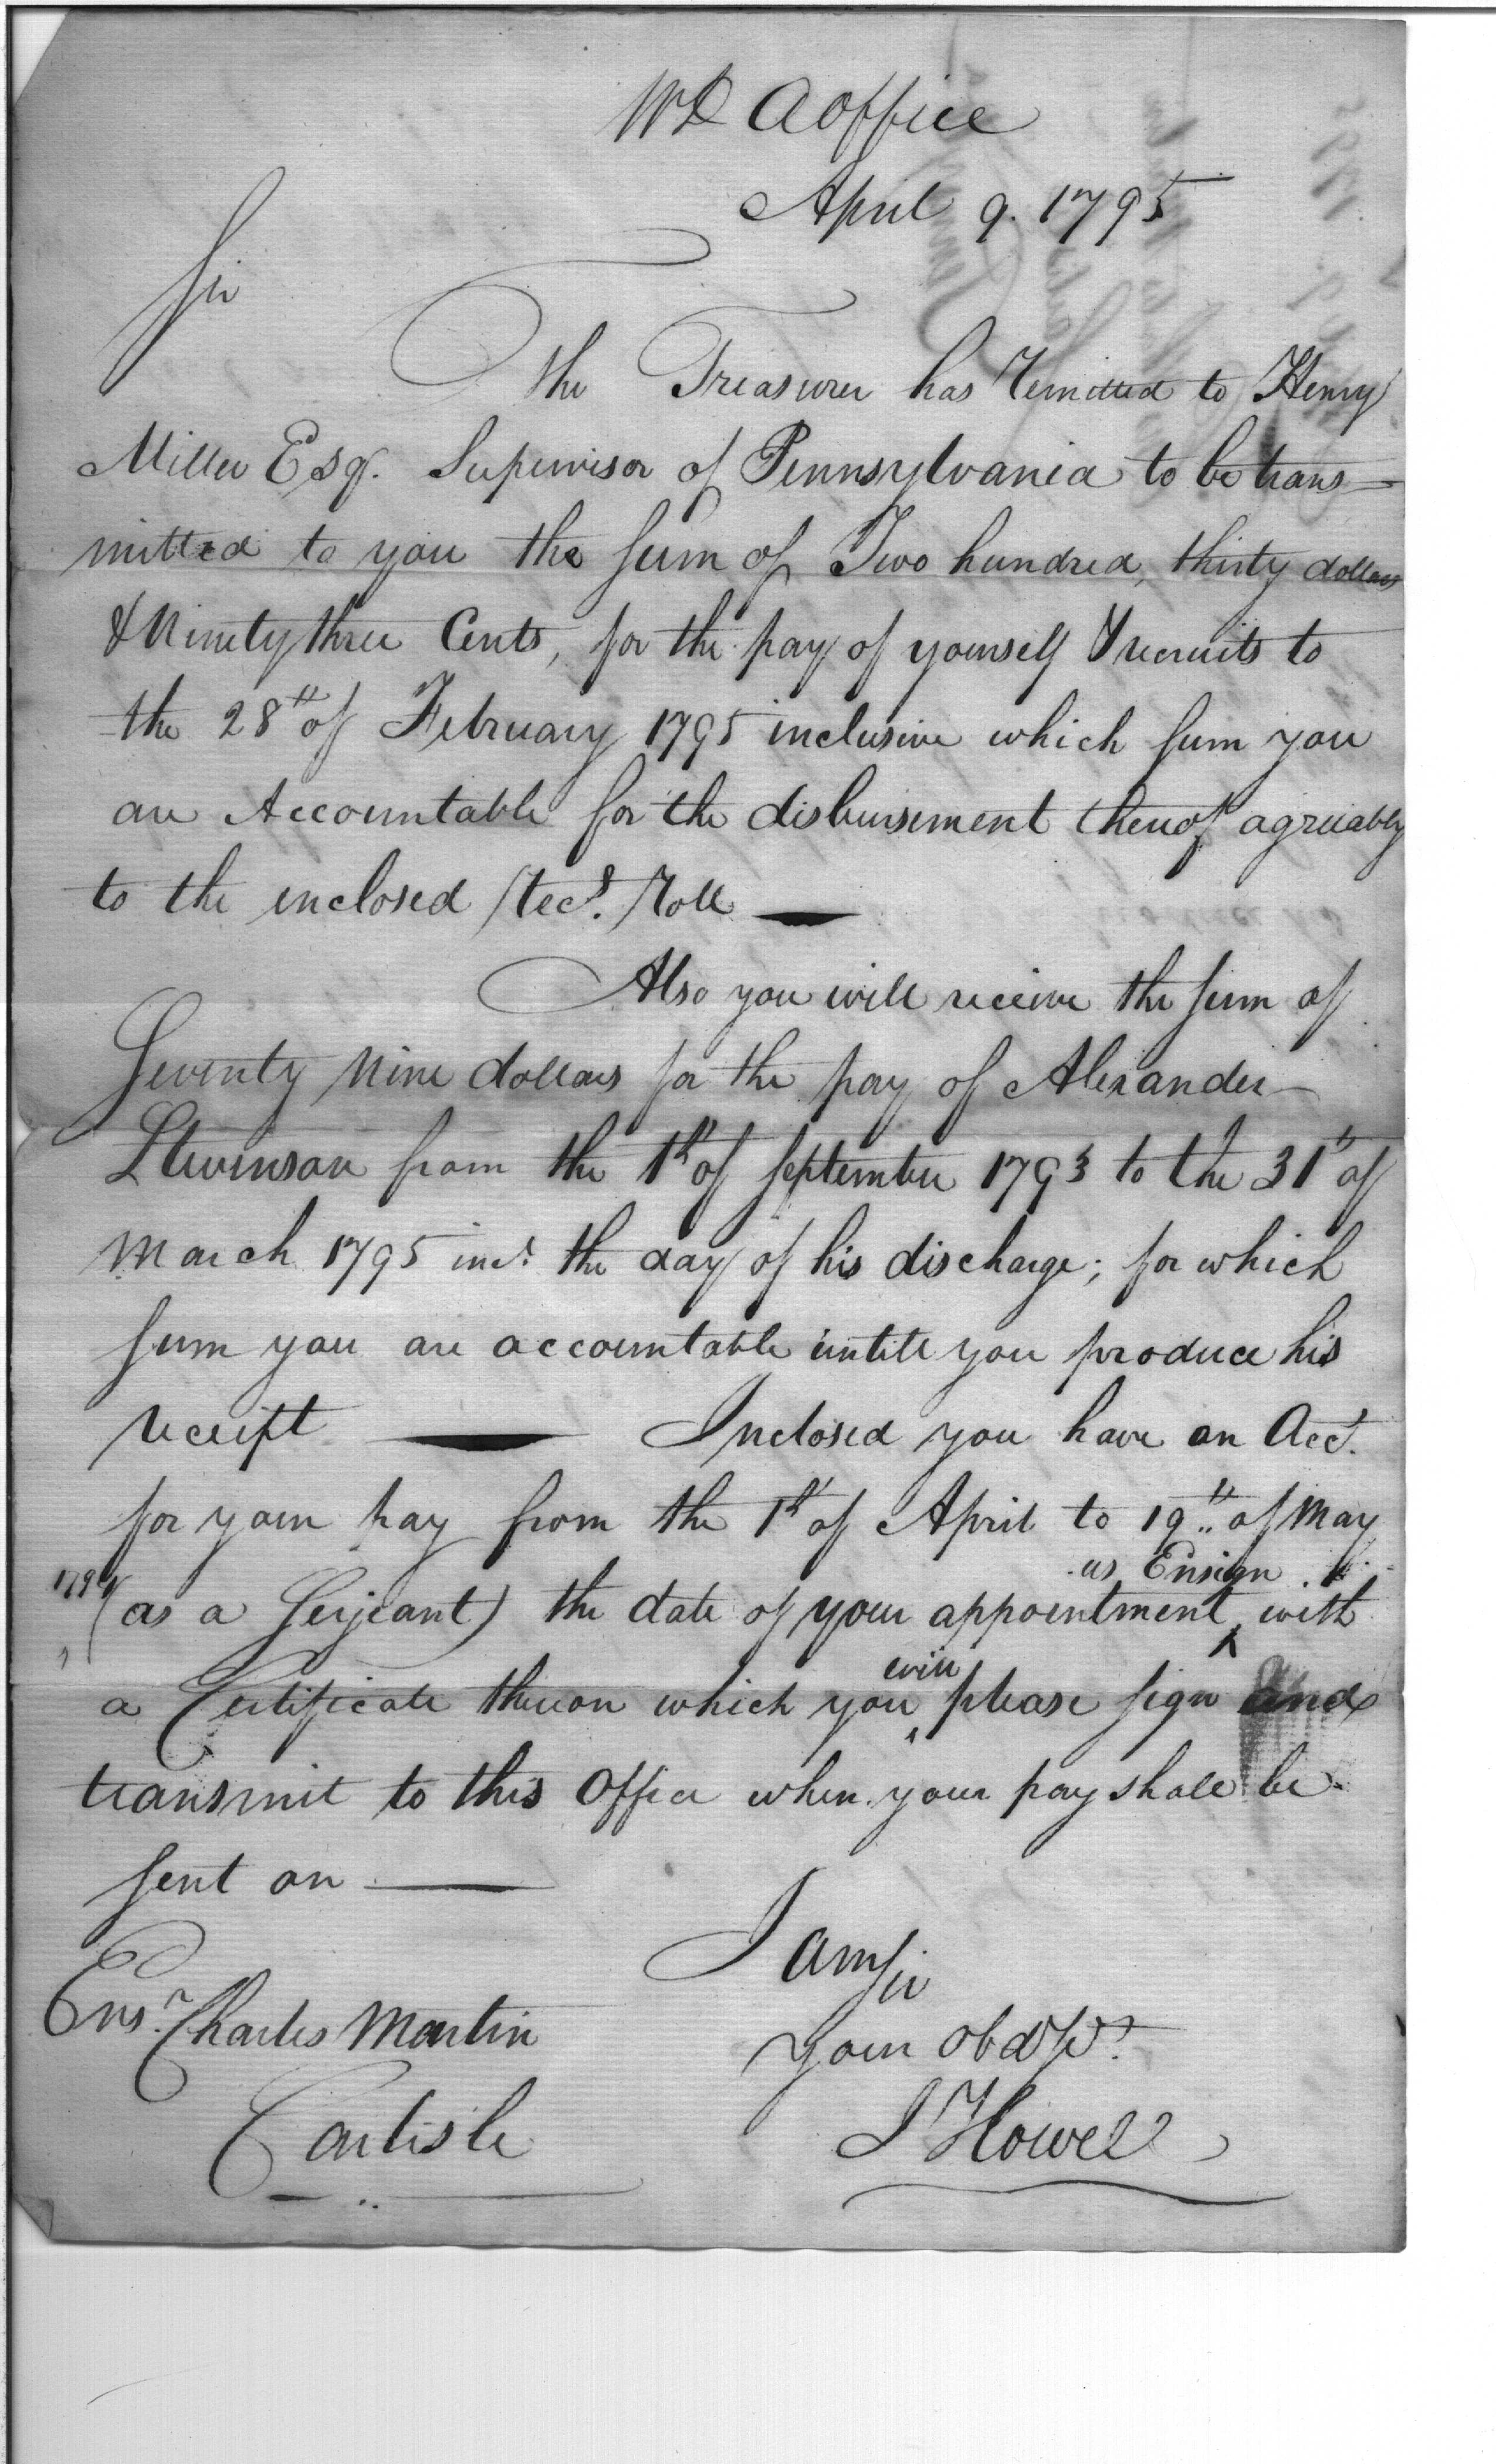 WD AOffice
April 9. 1795
Sir
The Treasurer has remitted to Henry
Miller Esqr. Supervisor of Pennsylvania to be trans=
mitted to you the sum of Two hundred, thirty dollars
& Ninety three Cents, for the pay of yourself & recruits to
the 28th of February 1795 inclusive which sum you
are Accountable for the disbursement thereof agreeably
to the enclosed Rect. Roll —
Also you will receive the sum of
Seventy Nine dollars for the pay of Alexander
Stevenson from the 1st of September 1793 to the 31st of
March 1795 incl. the day of his discharge; for which
sum you are accountable untill you produce his
receipt — Inclosed you have an Acct.
for your pay from the 1st of April to 19th of May
1794 (as a Serjeant) the date of your appointment ^ as Ensign with
a Certificate thereon which you ^ will please sign and
transmit to this Office when your pay shall be
sent on —
I am Sir
Ensn. Charles Martin
Your Obd Sr.
Carlisle
J Howell